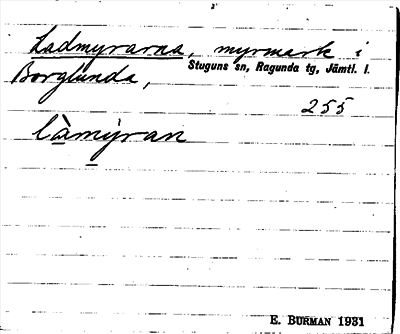 Ladmyrarna, myrmark i
Stuguns sn, Ragunda tg, Jämtl. l.
Borglunda,
255
làmỳran
E. BURMAN 1931